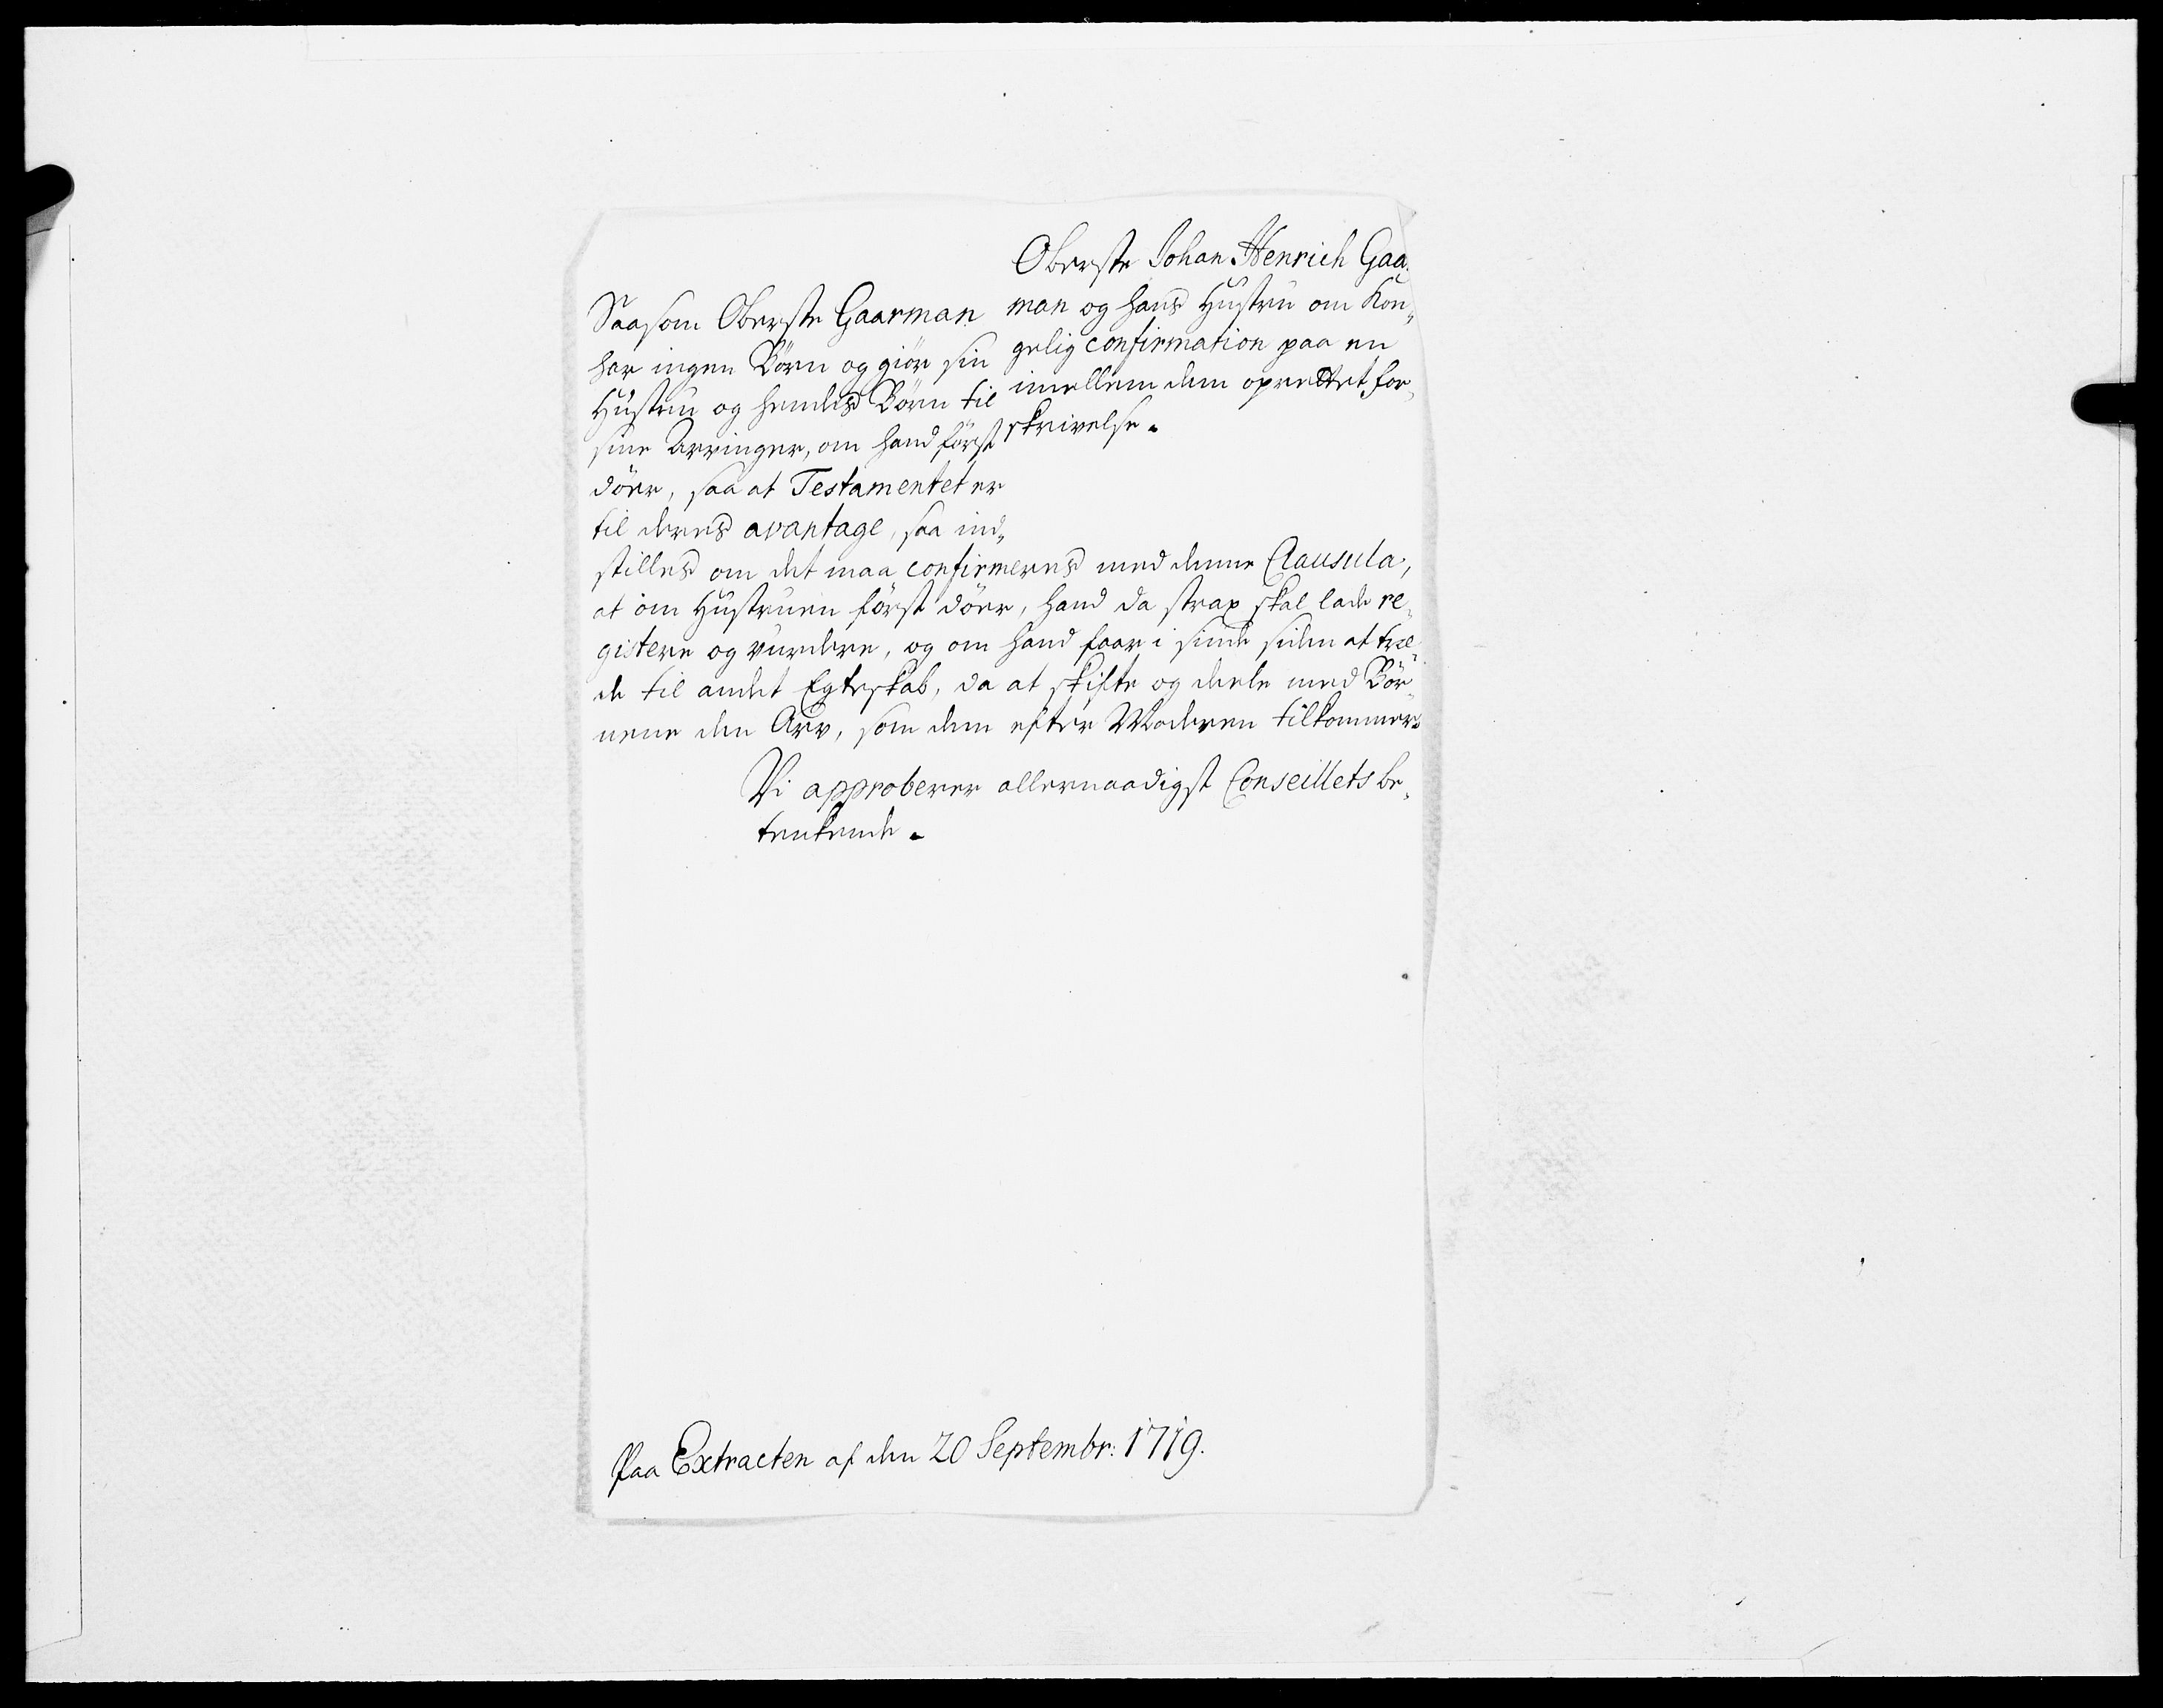 Oberste Johan Henrich Gaa
man og hans Hustru om Kon„
gelig confirmation paa en
imellem dem oprettet for„
skrivelse.
Saasom Oberste Gaarman
har ingen Börn og giör sin
Hustru og hendes Börn til
sine Arvinger, om hand först
döer, saa at Testamentet er
til deres avantage, saa ind„
stilles om det maa confirmeres med denne Clausula,
at om Hustruen först döer, hand da strax skal lade re„
gistere og vurdere, og om hand faar i sinde siden at træ„
de til andet Egteskab, da at skifte og deele med Bör„
nene den Arv, som dem efter Moderen tilkommer.
Vi approberer allernaadigst Conseillets be„
tenkende.
Paa Extracten af den 20 Septembr: 1719.